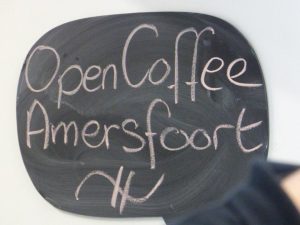 OpenCoffee
Amersfoort